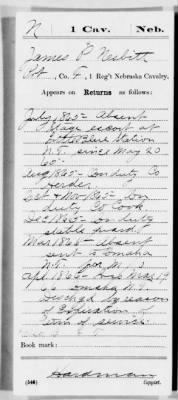 N | 1 Cav. | Neb.
James P. Nesbitt
Pvt, Co. F, 1 Reg't Nebraska Cavalry.
Appears on Returns as follows:
July 1865- Absent
Stage escort at
Station
N.T. since May 20
65-
Aug 1865- On duty Co
Herder
Oct & Nov 1865- On
duty Co Cook
Dec 1865- On duty
stable guard
Mar 1866- Absent
sent to Omaha
N.T. for M.O.
Apr 1866-
66 Omaha N.T.
Dischgd by reason
of Expiration of
Term of service
Book mark:
(546)
Hardman
Copyist.